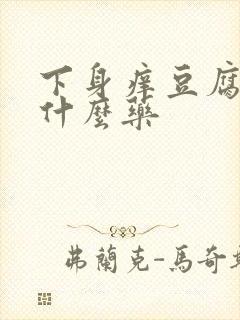 下身痒豆腐
什麼藥
弗蘭克-馬奇